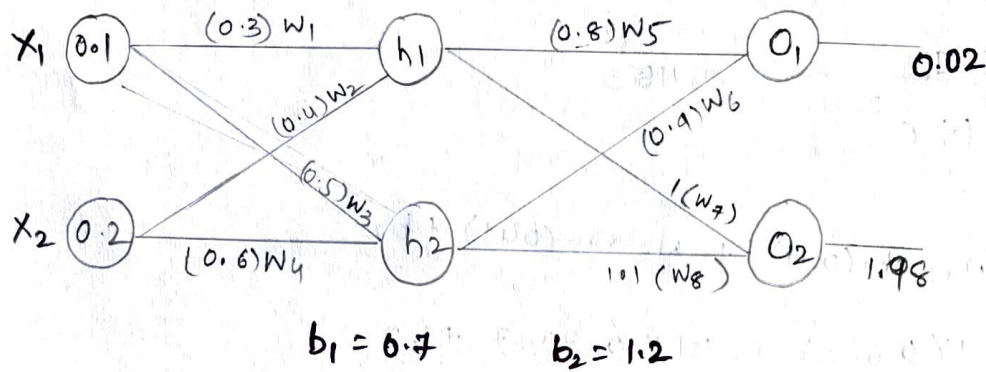 X1 0.1 (0.3) W1 h1 (0.8) W5 O1 0.02
(0.4) W2 (0.9) W6
(0.5) W3 1 (W7)
X2 0.2 (0.6) W4 h2 1.1 (W8) O2 1.98
b1 = 0.7 b2 = 1.2